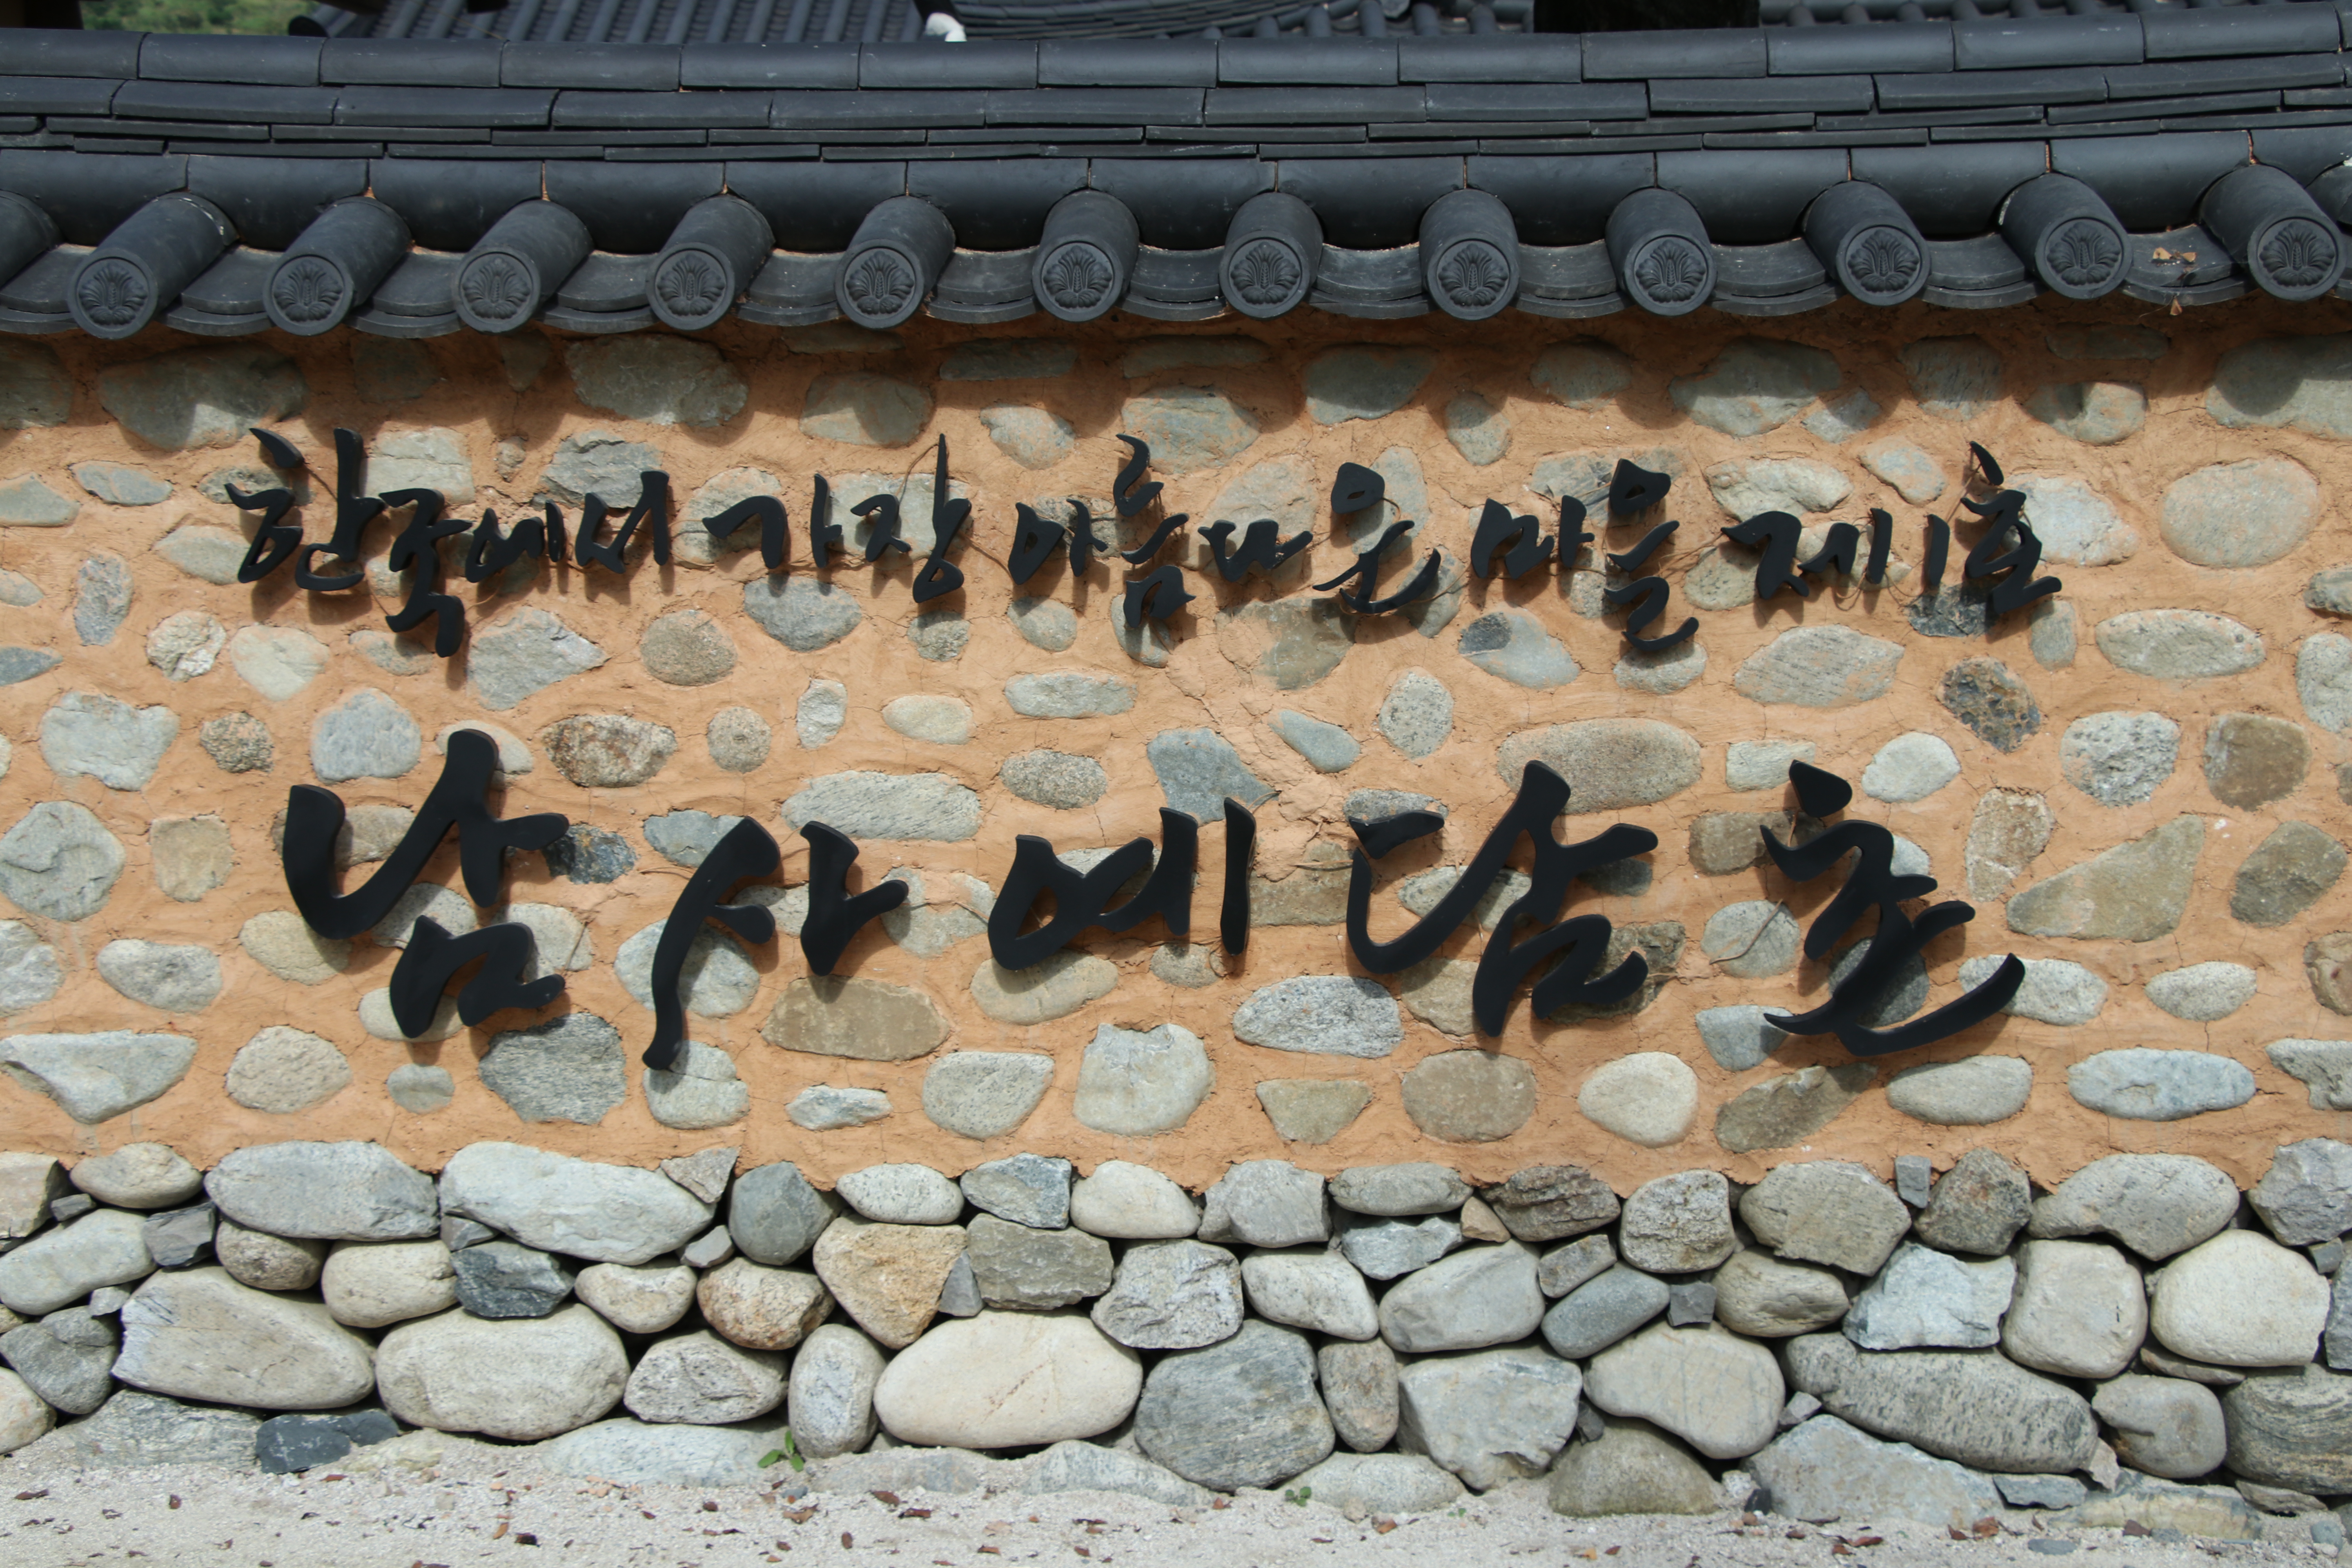 한국에서 가장 아름다운 마을 제1호
남사예담촌